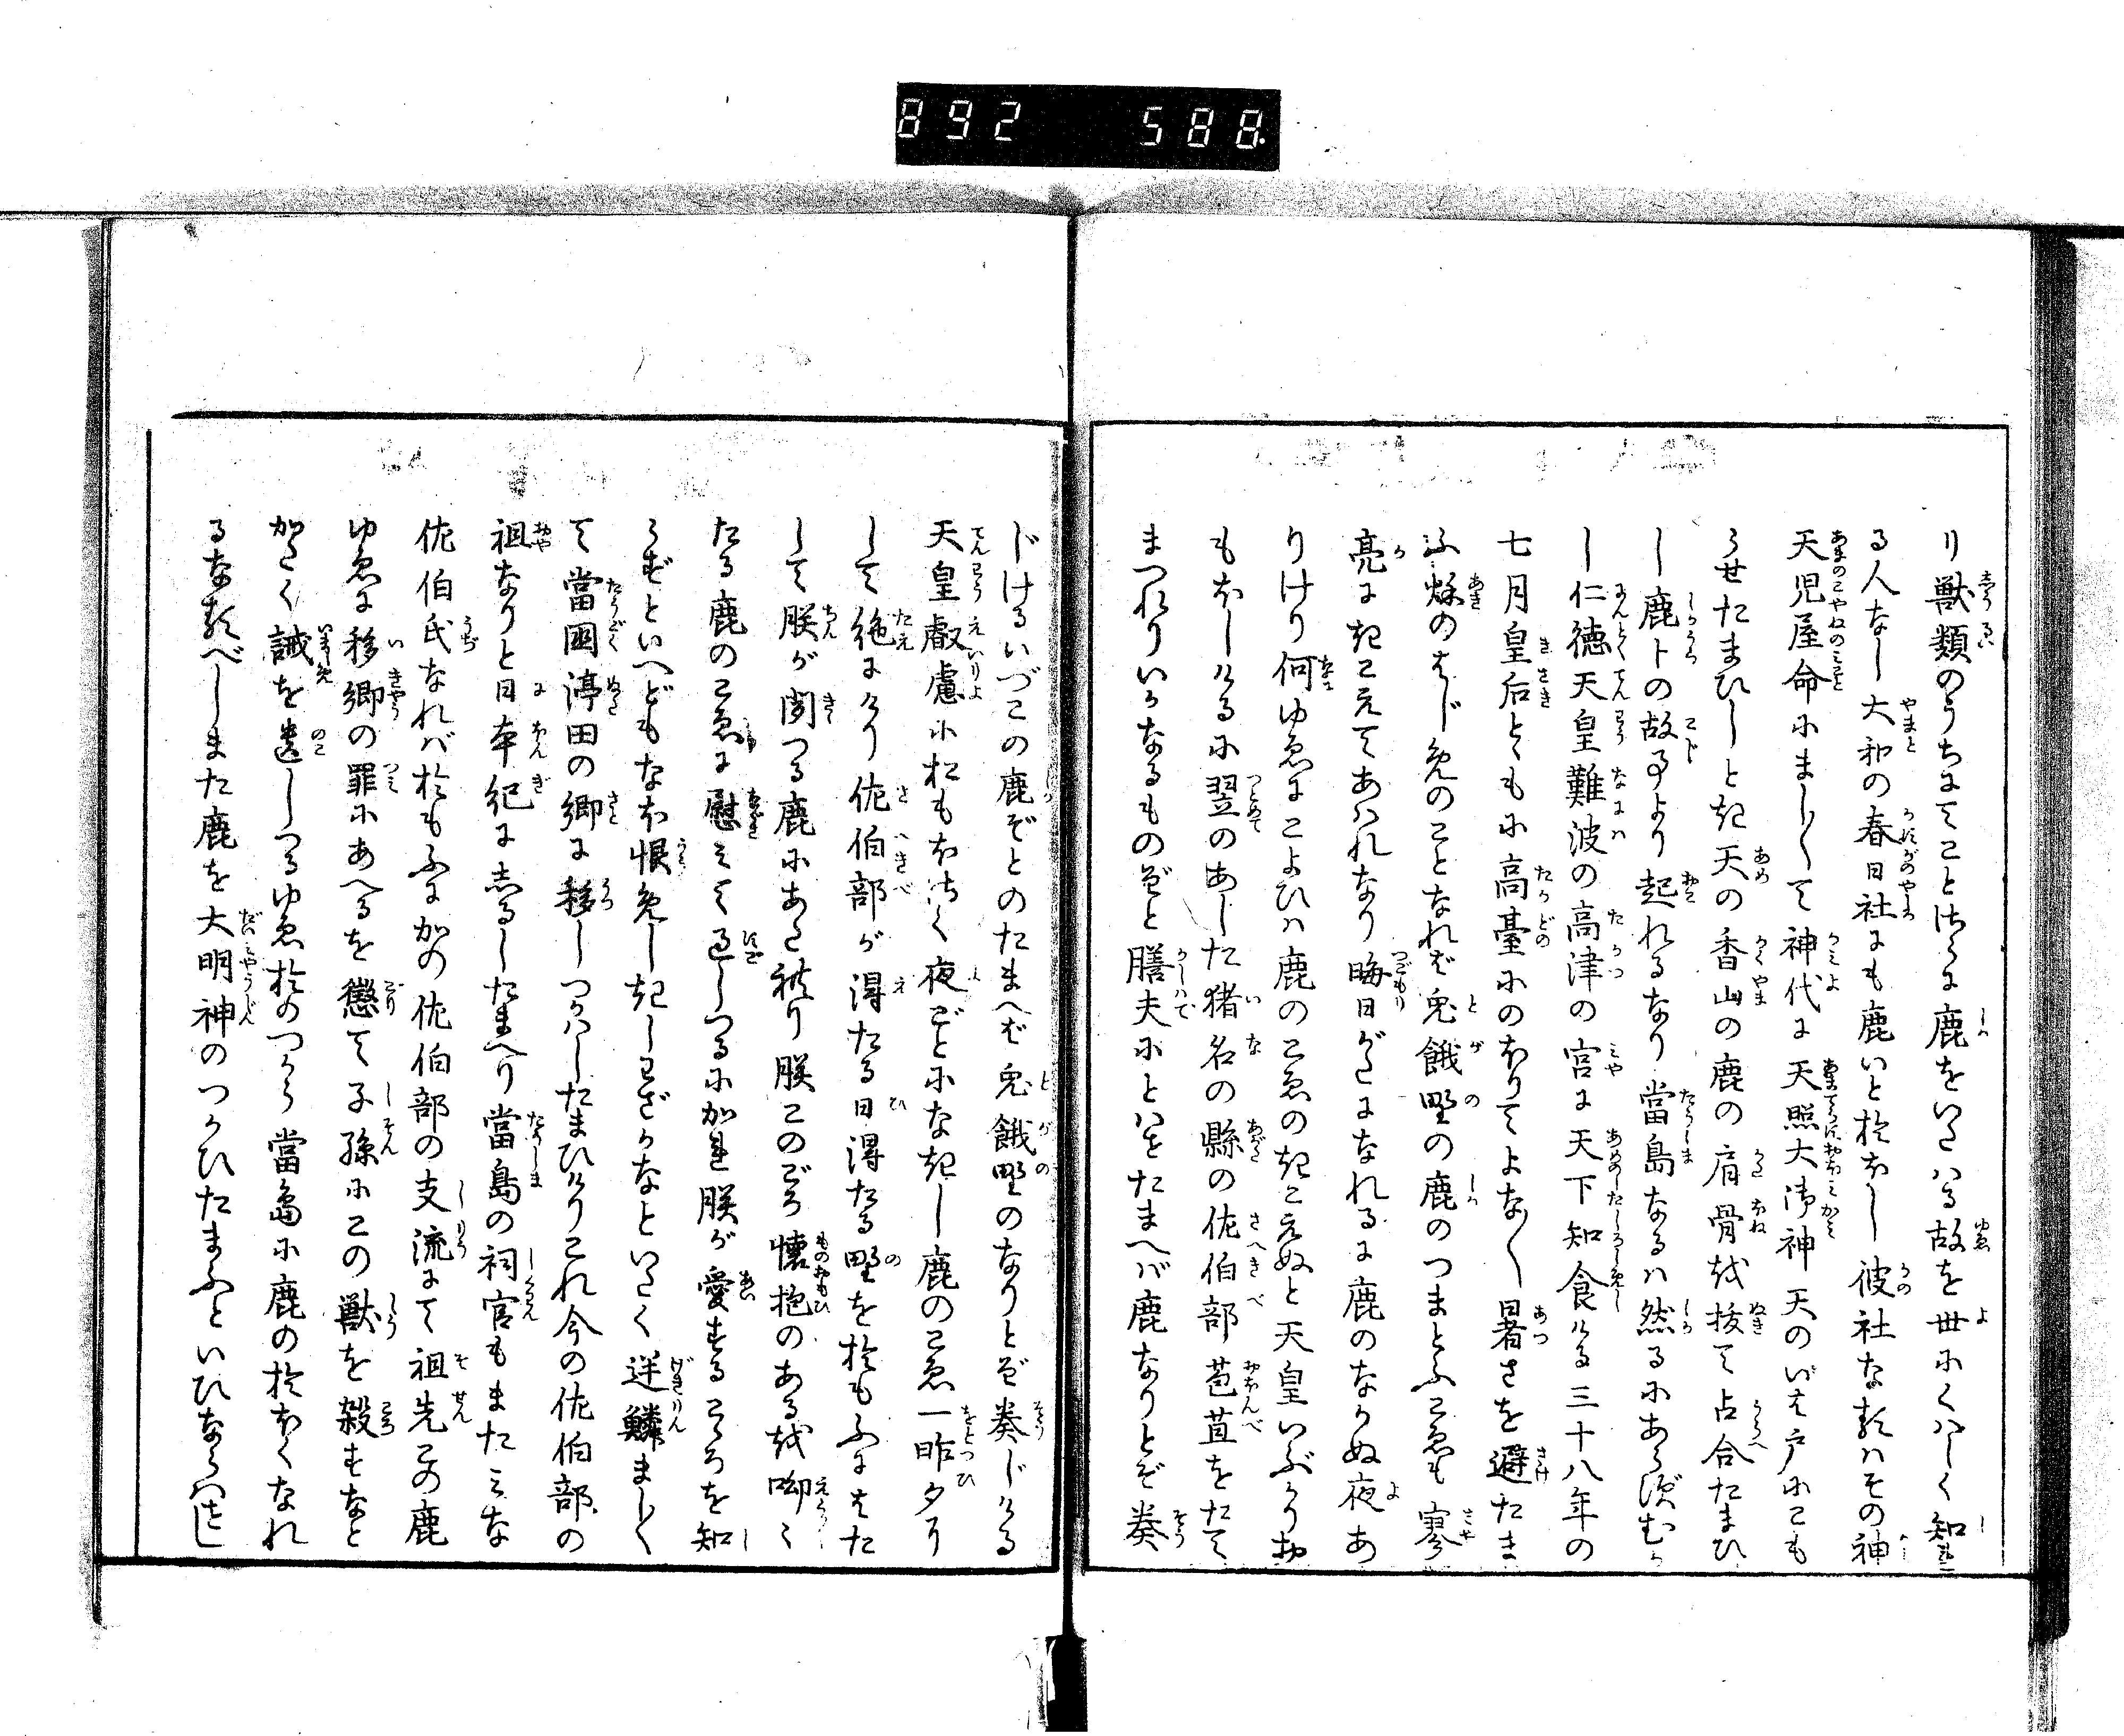 892 588.
り獣類のうちにてことさらに鹿をいたはる故を世にくはしく知れ
る人なし大和の春日社にも鹿いと於ほし彼社なるはその神
天児屋命にまし〳〵て神代に天照大御神天のいは戸にこも
らせたまひしとき天の香山の鹿の肩骨を抜て占合たまひ
し鹿卜の故事より起れるなり當島なるは然るにあらずむか
し仁徳天皇難波の高津の宮に天下知食ける三十八年の
七月皇后ともに高臺にのぼりてよな〳〵暑さを避たま
ふ穐のはじめのことなれば兎餓野の鹿のつまとふこゑも寥
亮にきこえてあはれなり晦日がたになれるに鹿のなかぬ夜あ
りけり何ゆゑにこよひは鹿のこゑのきこえぬと天皇いぶかりお
もほしけるに翌のあした猪名の縣の佐伯部苞苴をたて
まつれりいかなるものぞと膳夫にとはせたまへば鹿なりとぞ奏
じけるいづこの鹿ぞとのたまへば兎餓野のなりとぞ奏じける
天皇叡慮におもほさく夜ごとになきし鹿のこゑ一昨夕り
して絶にけり佐伯部が得たる日得たる野を於もふにはた
して朕が聞つる鹿にあたれり朕このごろ懐抱のあるを聊く
たる鹿のこゑに慰みて過しつるに加れ朕が愛するこころを知
らずといへどもなほ恨めしきしわざかなといたく逆鱗まし〳〵
て當國渟田の郷に移しつかはしたまひけりこれ今の佐伯部の
祖なりと日本紀に志るしたまへり當島の祠官もまたみな
佐伯氏なれば於もふに加の佐伯部の支流にて祖先この鹿
ゆゑに移郷の罪にあへるを懲て子孫にこの獣を殺すなと
かたく誡を遺しつるゆゑ於のつから當島に鹿の於ほくなれ
るなるべしまた鹿を大明神のつかひたまふといひならはせし